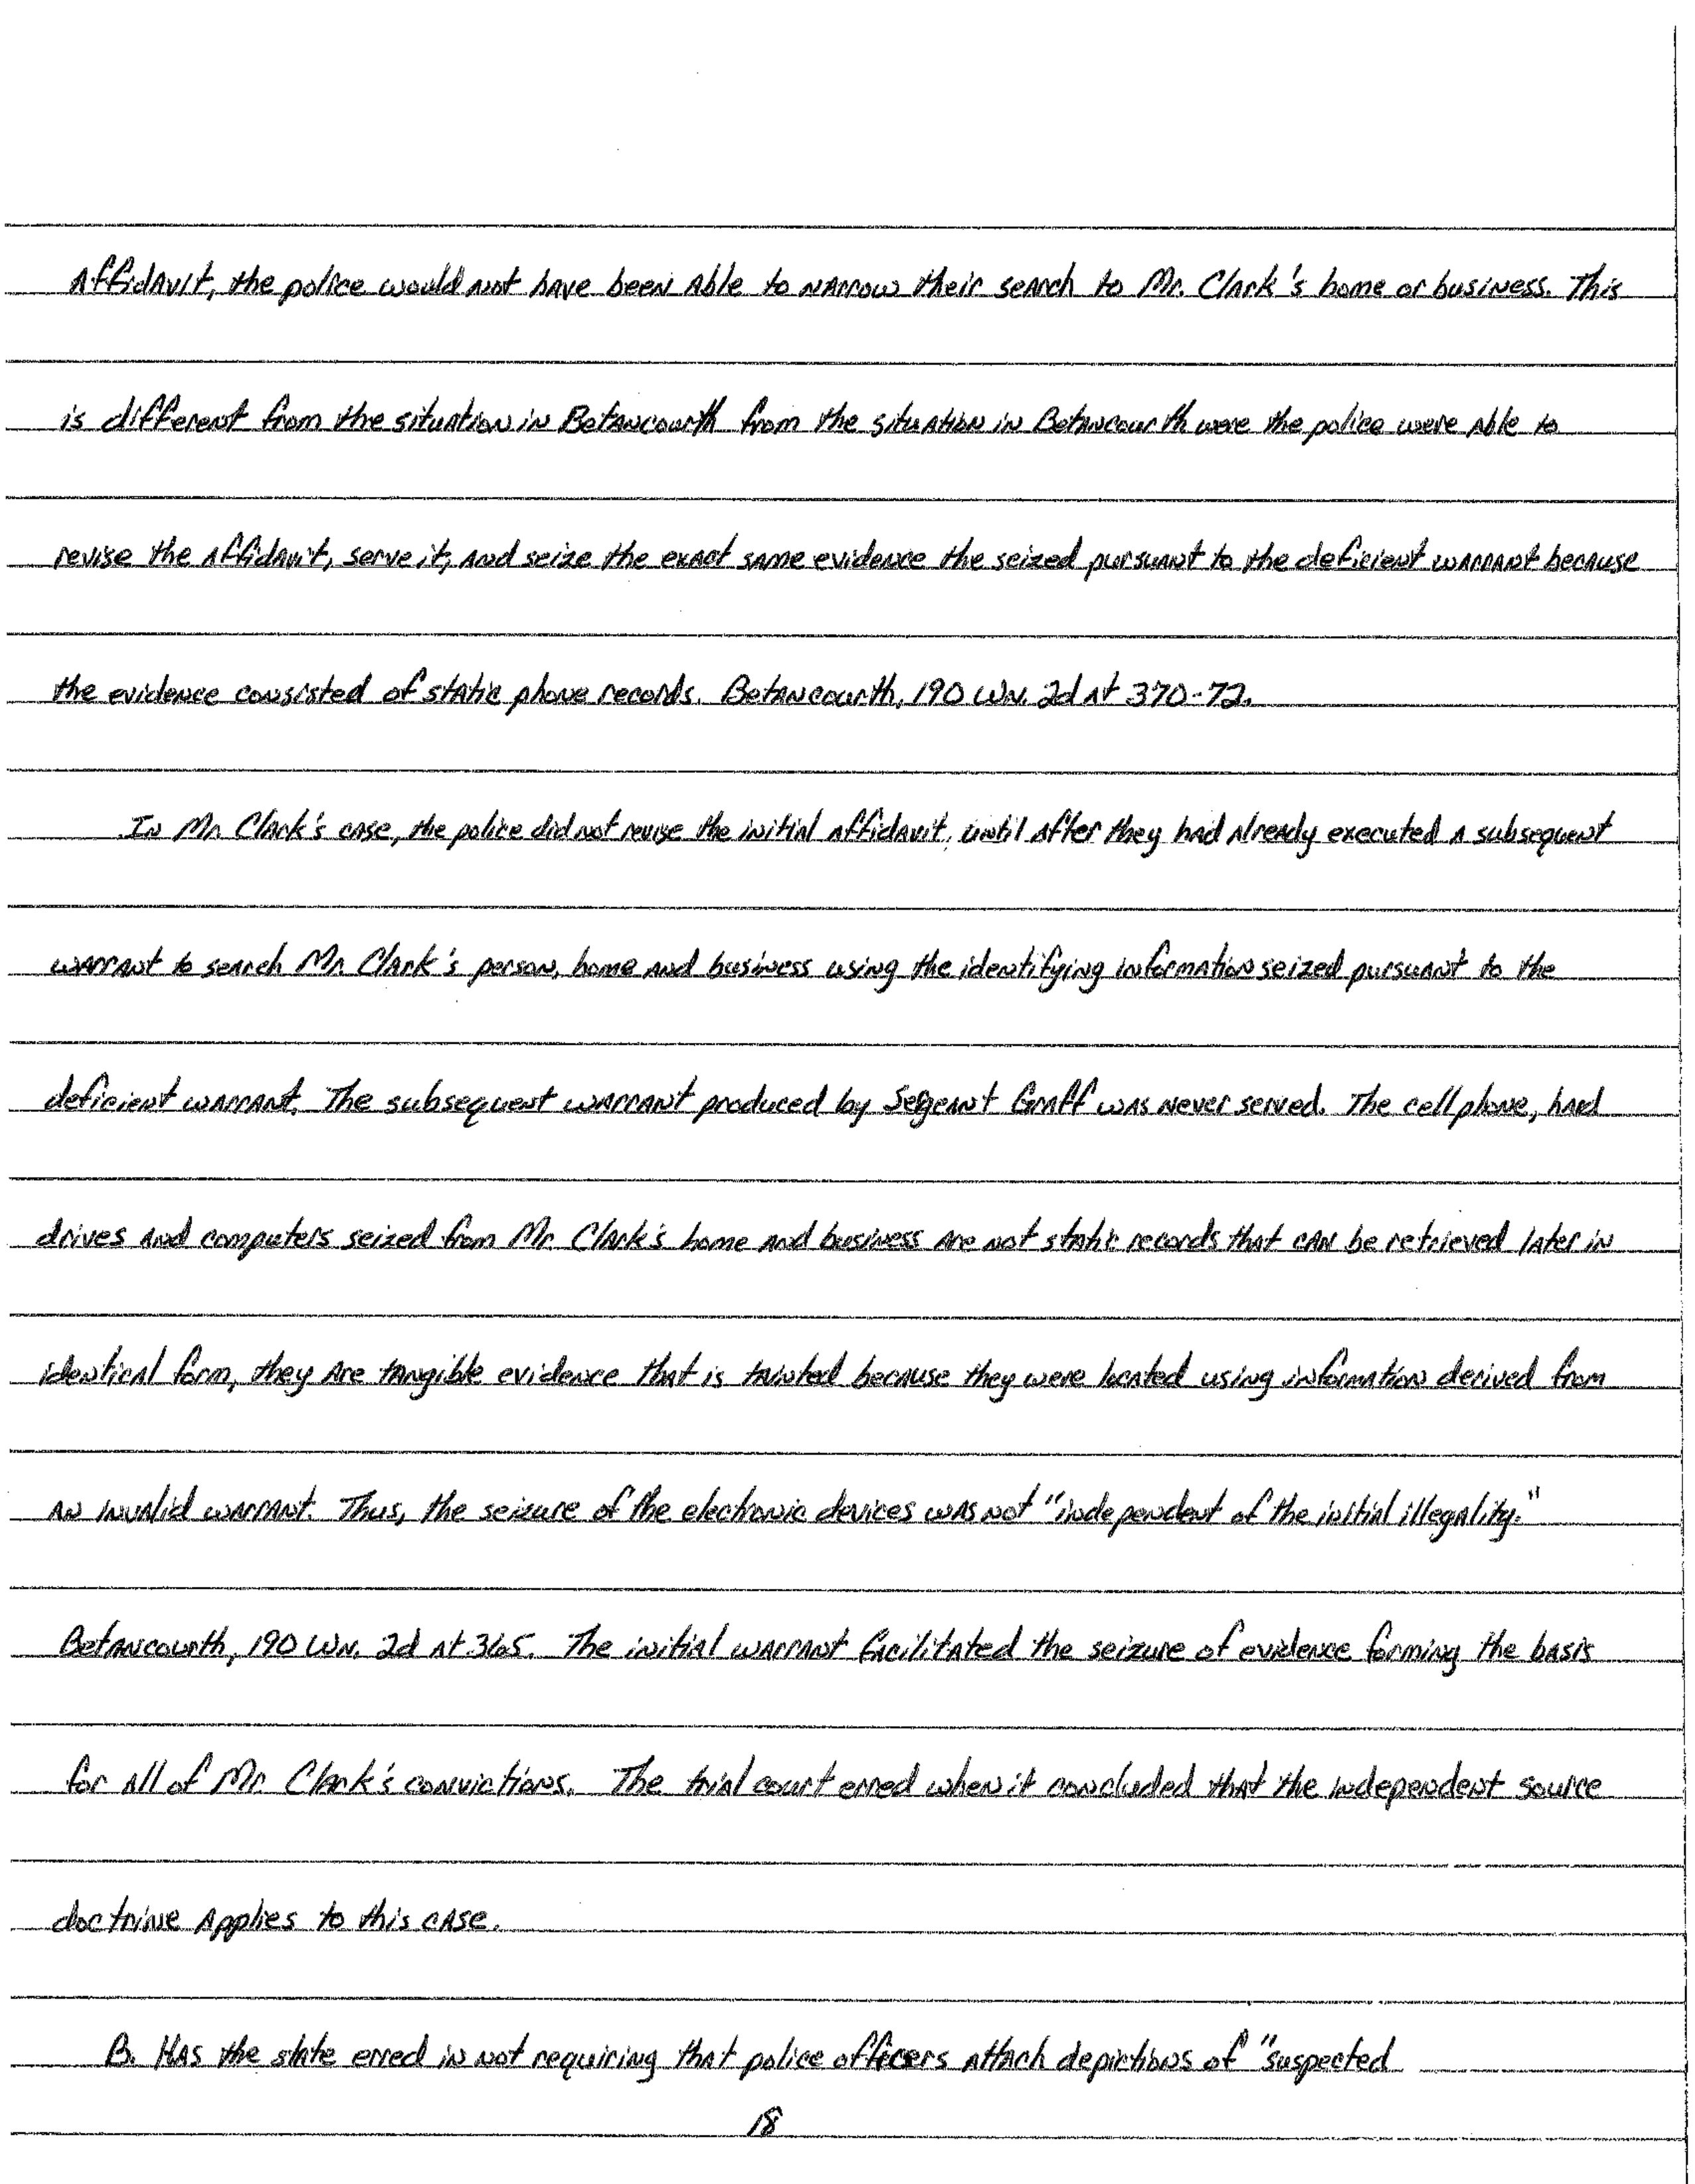 Affidavit, the police would not have been able to narrow their search to Mr. Clark's home or business. This
is different from the situation in Betancourth from the situation in Betancourth were the police were able to
revise the affidavit, serve it, and seize the exact same evidence the seized pursuant to the deficient warrant because
the evidence consisted of static phone records. Betancourth, 190 Wn. 2d at 370-72.
In Mr. Clark's case, the police did not revise the initial affidavit, until after they had already executed a subsequent
warrant to search Mr. Clark's person, home and business using the identifying information seized pursuant to the
deficient warrant. The subsequent warrant produced by Segeant Graff was never served. The cell phone, hard
drives and computers seized from Mr. Clark's home and business are not static records that can be retrieved later in
identical form, they are tangible evidence that is tainted because they were located using information derived from
an invalid warrant. Thus, the seizure of the electronic devices was not "independent of the initial illegality."
Betancourth, 190 Wn. 2d at 365. The initial warrant facilitated the seizure of evidence forming the basis
for all of Mr. Clark's convictions. The trial court erred when it concluded that the independent source
doctrine applies to this case.
B. Has the state erred in not requiring that police officers attach depictions of "suspected
18